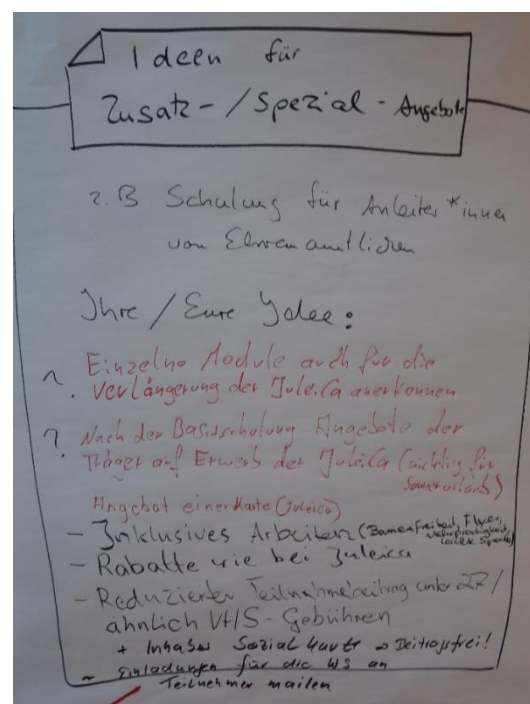 Ideen für
Zusatz-/Spezial-Angebote
z.B Schulung für Anleiter*innen
von Ehrenamtlichen
Ihre/Eure Idee:
Einzelne Module auch für die
Verlängerung der JuleiCa anerkennen
Nach der Basisschulung Angebote der
Träger auf Erwerb der JuleiCa (wichtig für
Sonderurlaub)
Angebot einer Karte (Juleica)
- Inklusives Arbeiten (Barrierefreiheit, Flyer,
Mehrsprachigkeit,
leichte Sprache)
- Rabatte wie bei Juleica
- Reduzierter Teilnahmebeitrag unter 27/
ähnlich VHS-Gebühren
+ Inhaber Sozial Karte => Beitragsfrei!
~ Einladungen für die WS an
Teilnehmer mailen